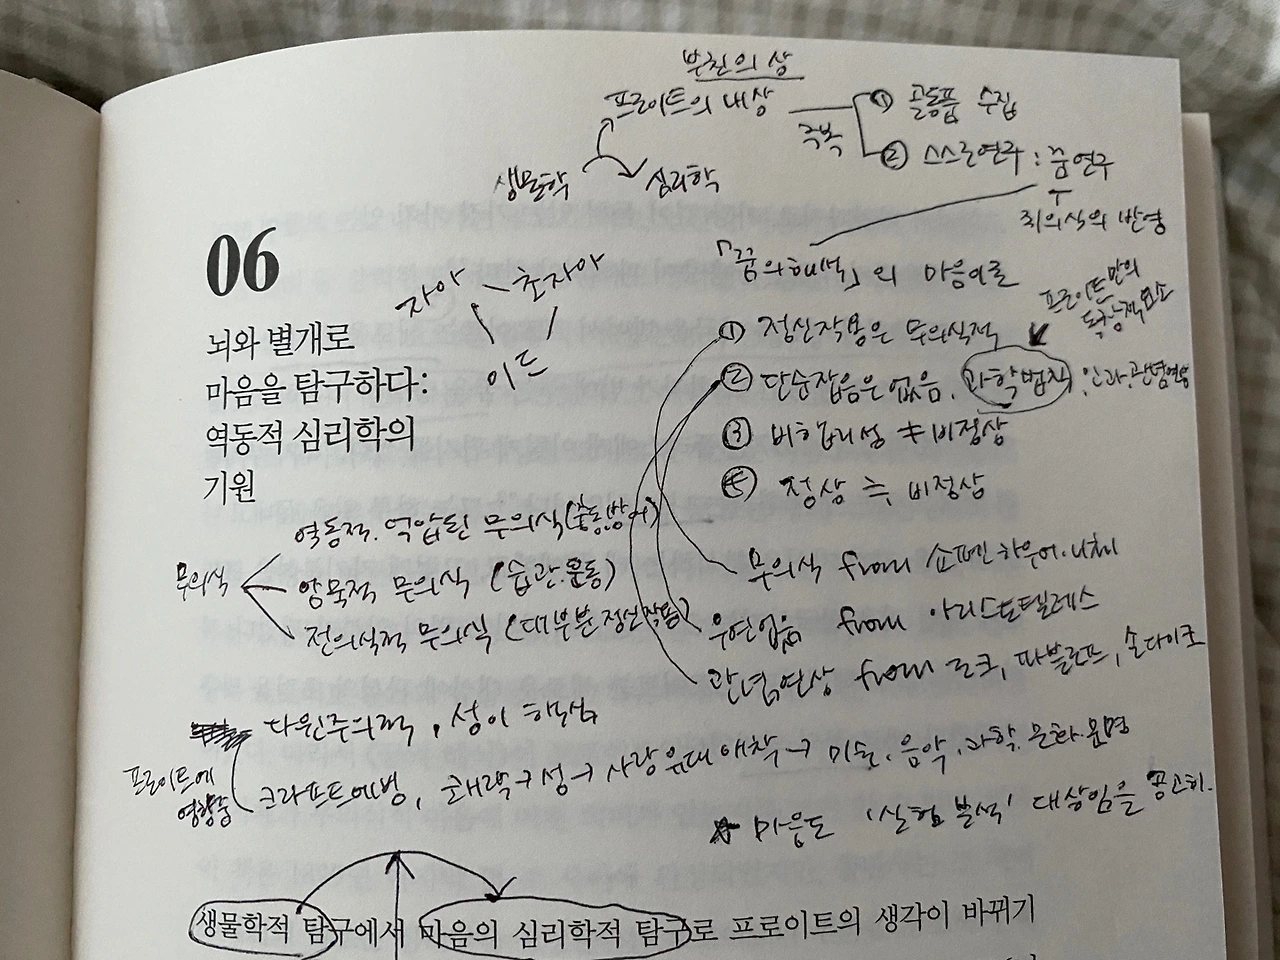 부친의 상
프로이트의 내상
극복
① 골동품 수집
② 스스로연구 : 꿈연구
생물학
심리학
죄의식의 반영
06
자아
초자아
이드
「꿈의해석」의 마음이론
프로이트만의
독창적요소
뇌와 별개로
마음을 탐구하다:
역동적 심리학의
기원
① 정신작용은 무의식적
② 단순잡음은 없음. 과학법칙, 인과.관념연상
③ 비합리성 ≠ 비정상
④ 정상 ≒ 비정상
무의식
역동적. 억압된 무의식(충동.방어)
암묵적 무의식 (습관.운동)
전의식적 무의식 (대부분정신작동)
무의식 from 쇼펜하우어.니체
우연없음 from 아리스토텔레스
관념연상 from 로크, 파블로프, 손다이크
프로이트에
영향줌
다윈주의적, 성이 핵심
크라프트에빙, 쾌락→성→사랑유대애착→미술, 음악, 과학, 문화.문명
★ 마음도 '실험 분석' 대상임을 공고히.
생물학적 탐구에서 마음의 심리학적 탐구로 프로이트의 생각이 바뀌기